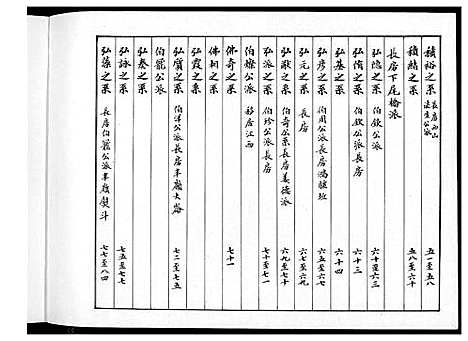 積裕之系 長房西山 五一至五八
積結之系 五八至六十
長房下尾橋派
弘隐之系 伯欽公派 六十至六三
弘脩之系 伯欽公派長房 六十三
弘基之系 六十四
弘彥之系 伯周公派長房鴻 六五至六七
弘元之系 長房 六七至六九
弘猷之系 伯奇公系長房美德派 六九至七十
弘派之系 伯珍公派長房 七十至七一
伯燦公派 移居江西
佛奇之系 七十一
佛桐之系
弘霞之系
弘賓之系 伯洋公派長房半嶺大崙 七二至七五
伯寵公派
弘奏之系
弘詠之系 七五至七七
弘藻之系 長房伯寵公派半嶺熨斗 七七至八四